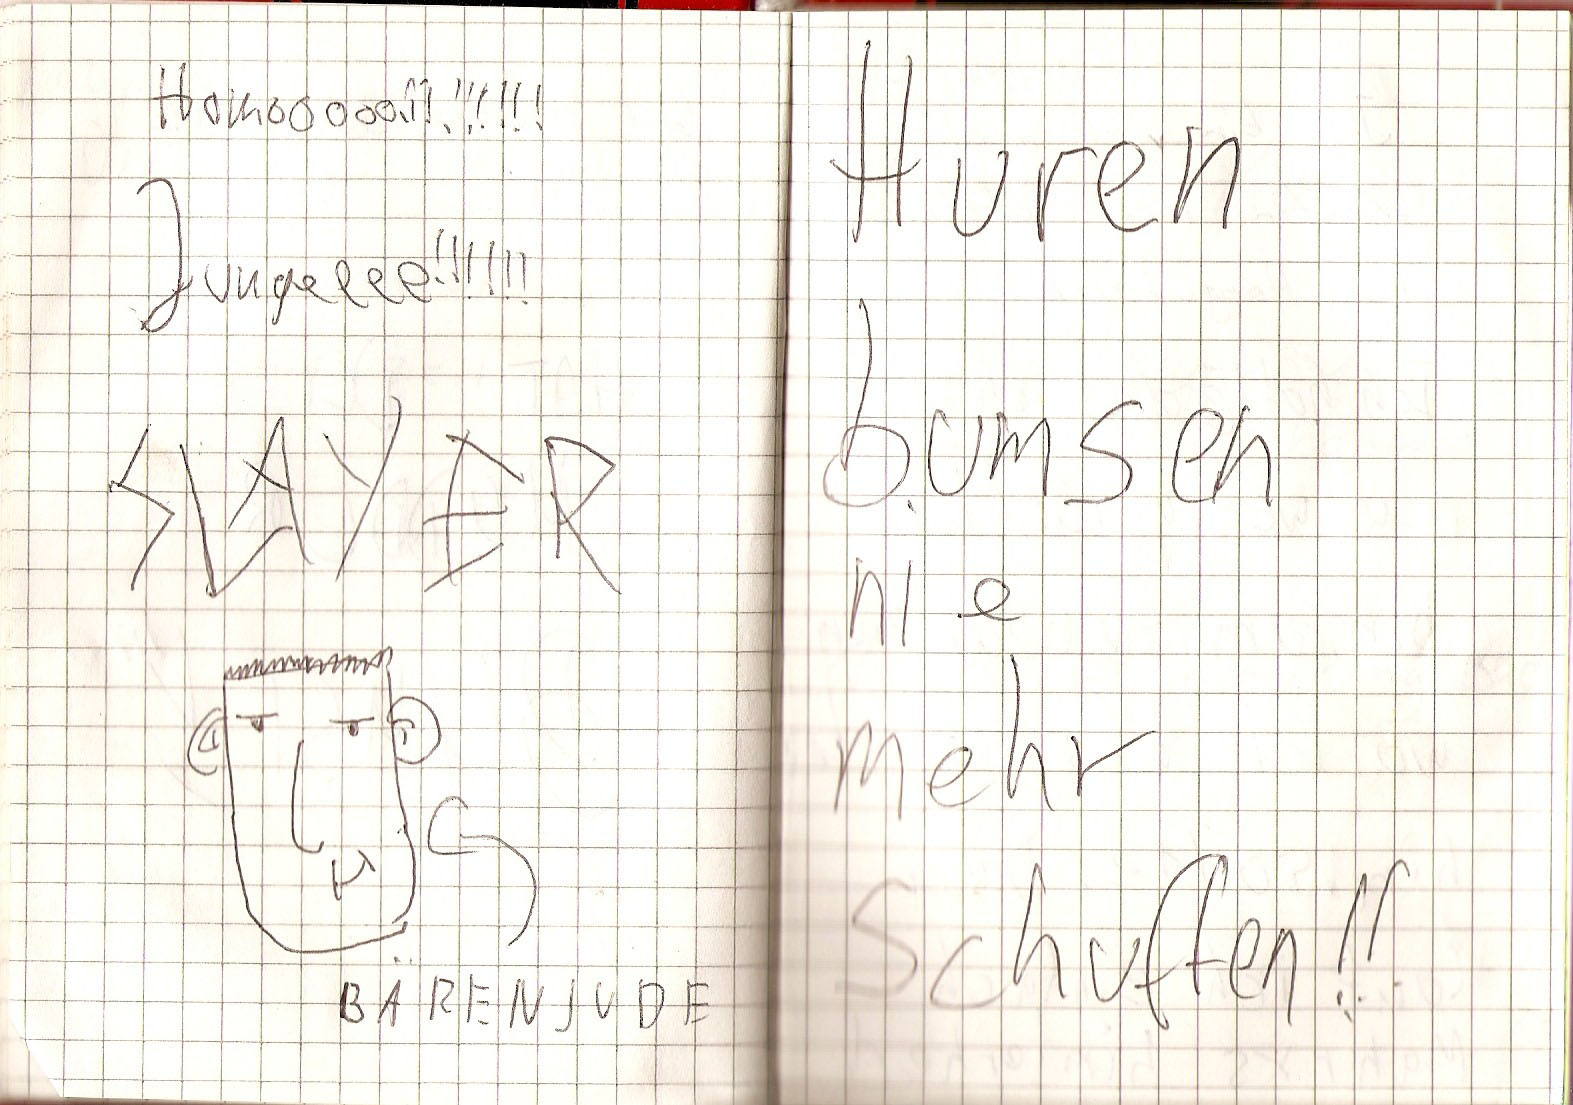 Homoooooiii!!!!!!
Jungeeee!!!!!!!
SLAYER
BÄRENJUDE
Huren
bumsen
nie
mehr
Schuften!!